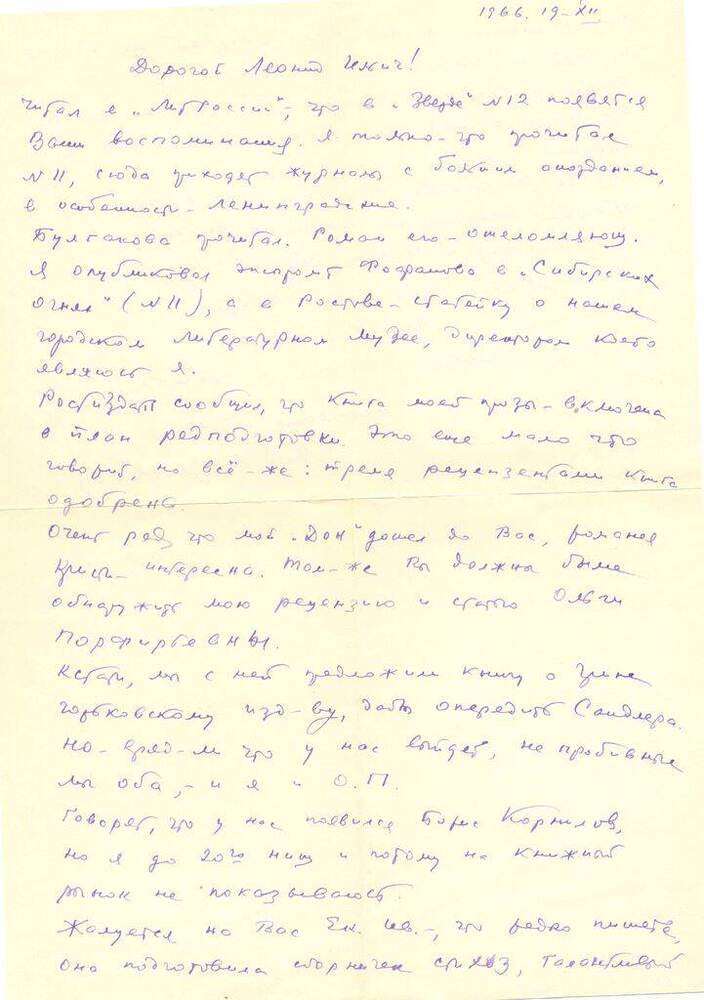 1966. 19-XII
Дорогой Леонид Ильич!
Читал в „Литроссии", что в „Звезде" N12 появятся
Ваши воспоминания. Я только-что прочитал
N11, сюда приходят журналы с большим опозданием,
в особенности - Ленинградские.
Булгакова прочитал. Роман его - ошеломляющ.
Я опубликовал экспромт Фофанова в „Сибирских
огнях" (N11), а в Ростове - статейку о нашем
городском литературном музее, директором коего
являюсь я.
Ростиздат сообщил, что книга моей прозы - включена
в план редподготовки. Это еще мало что
говорит, но всё-же: тремя рецензентами книга
одобрена.
Очень рад, что мой „Дон" дошел до Вас, романея
интересна. Там-же Вы должны были
обнаружить мою рецензию и статью Ольги
Порфирьевны.
Кстати, мы с ней предложили книгу о Грине
горьковскому изд-ву, дабы опередить Сандлера.
Но-вряд-ли что у нас выйдет, не пробивные
мы оба, - и я и О.П.
Говорят, что у нас появился Борис Корнилов,
но я до 20го нищ и потому на книжный
рынок не показываюсь.
Жалуется на Вас Ек. Ив. -, что редко пишете,
она подготовила сборничек стихов, талантливый